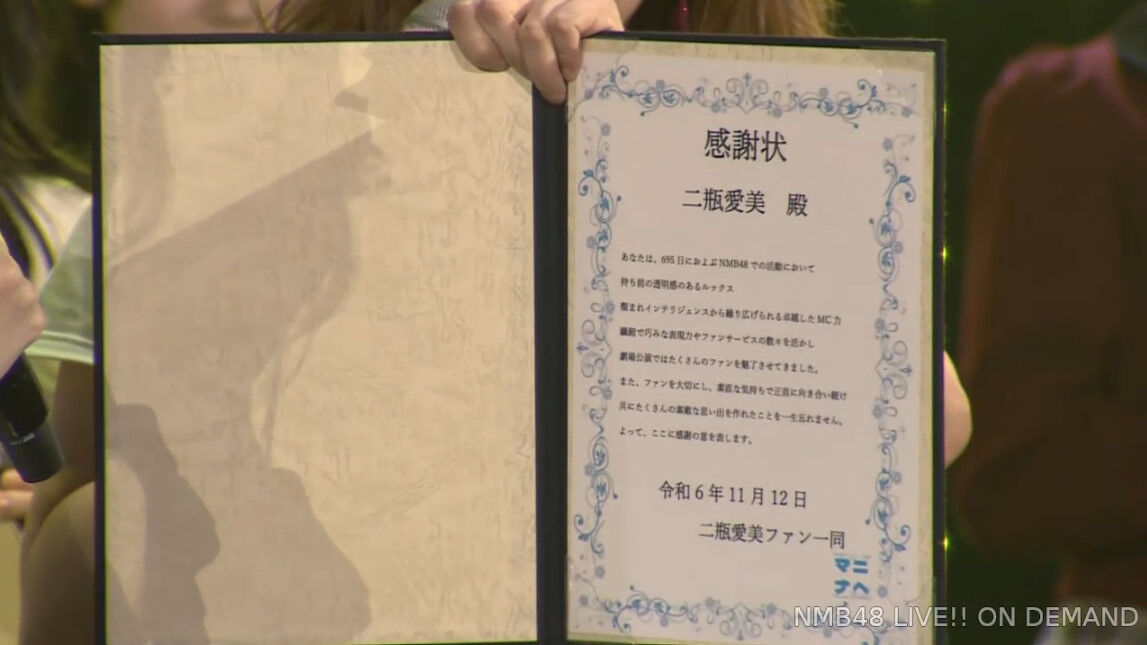 感謝状
二瓶愛美 殿
あなたは、695日におよぶNMB48での活動において
持ち前の透明感のあるルックス
類まれインテリジェンスから繰り広げられる卓越したMC力
繊細で巧みな表現力やファンサービスの数々を活かし
劇場公演ではたくさんのファンを魅了させてきました。
また、ファンを大切にし、素直な気持ちで正直に向き合い続け
共にたくさんの素敵な思い出を作れたことを一生忘れません。
よって、ここに感謝の意を表します。
令和6年11月12日
二瓶愛美ファン一同
マニ
アヘ
NMB48 LIVE!! ON DEMAND